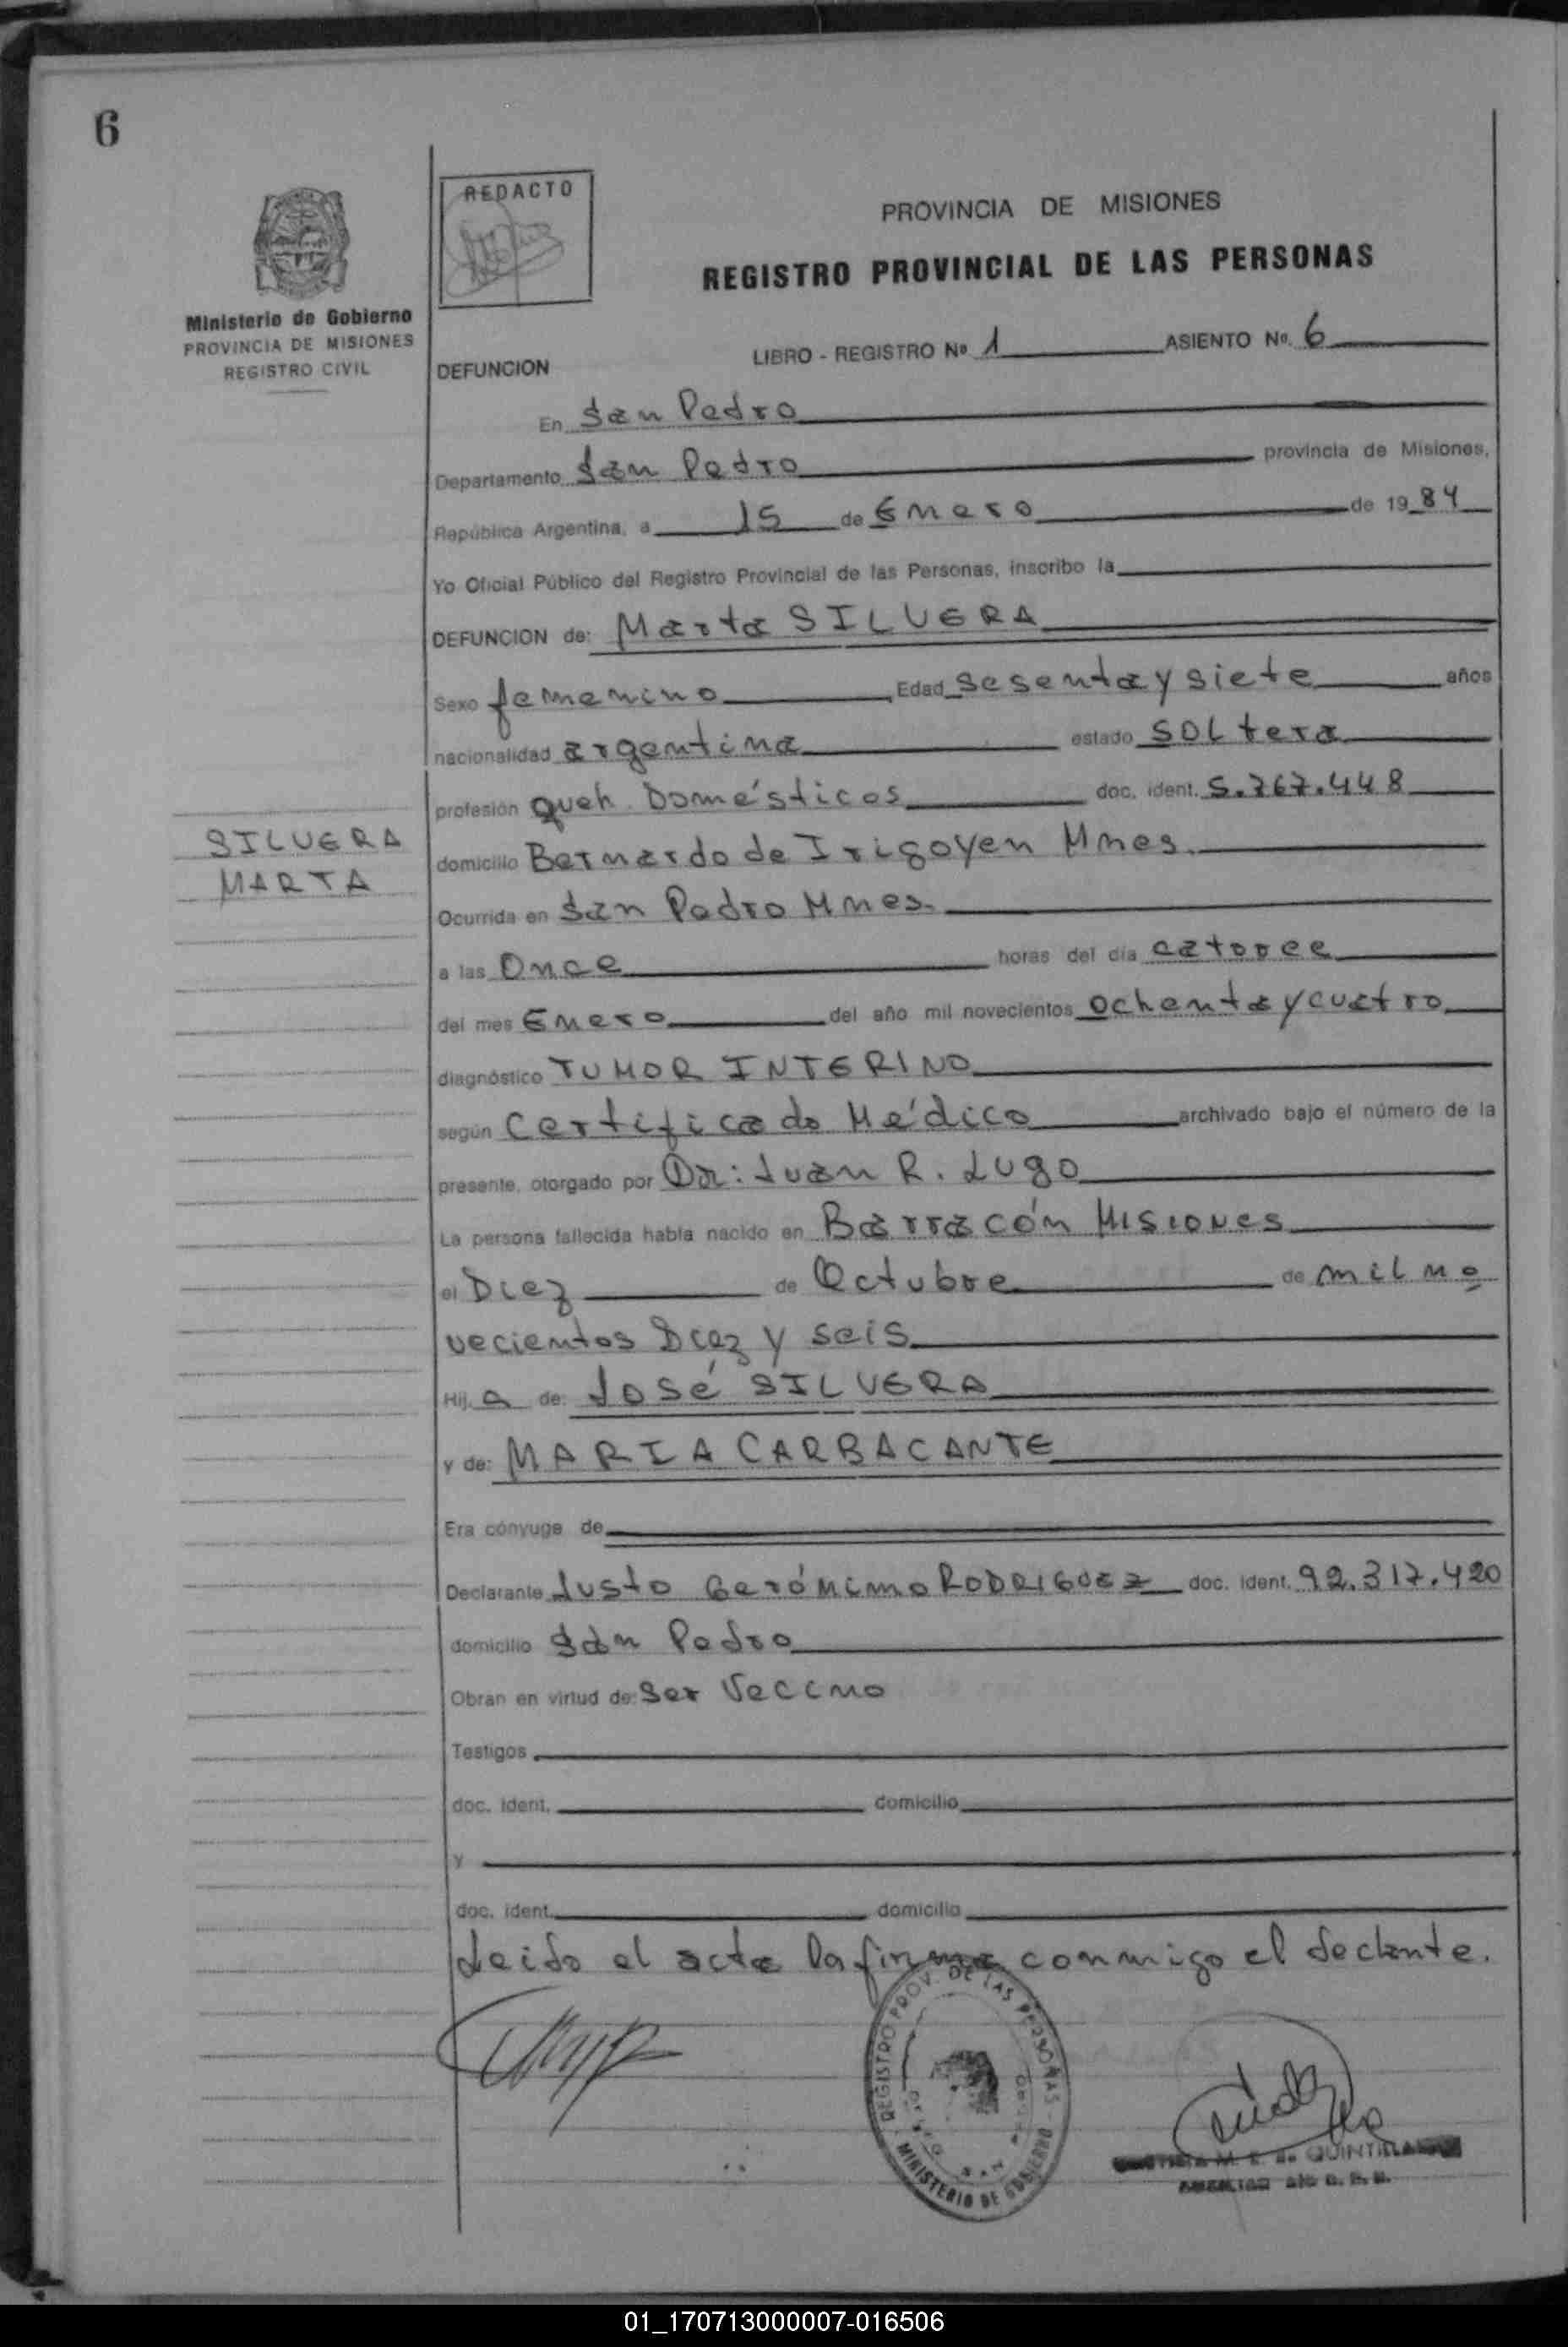 6
REDACTO
PROVINCIA DE MISIONES
REGISTRO PROVINCIAL DE LAS PERSONAS
Ministerio de Gobierno
PROVINCIA DE MISIONES
REGISTRO CIVIL
LIBRO - REGISTRO Nº 1 ASIENTO Nº. 6
DEFUNCION
En San Pedro
Departamento San Pedro provincia de Misiones,
República Argentina, a 15 de Enero de 1984
Yo Oficial Público del Registro Provincial de las Personas, inscribo la
DEFUNCION de: Marta SILVERA
Sexo femenino Edad sesenta y siete años
nacionalidad argentina estado SOLtera
profesión Queh. Domésticos doc. ident. 5.767.448
SILVERA
MARTA
domicilio Bernardo de Irigoyen Mnes.
Ocurrida en San Pedro Mnes.
a las Once horas del día catorce
del mes Enero del año mil novecientos ochenta y cuatro
diagnóstico TUMOR INTERINO
según Certificado Médico archivado bajo el número de la
presente, otorgado por Dr: Juan R. Lugo
La persona fallecida había nacido en Barracón Misiones
el Diez de Octubre de mil no
vecientos Diez y seis
Hija de: José SILVERA
y de: MARIA CARBACANTE
Era cónyuge de
Declarante Justo Gerónimo RODRIGUEZ doc. ident. 92.317.420
domicilio San Pedro
Obran en virtud de: Ser Vecino
Testigos
doc. ident. domicilio
y
doc. ident. domicilio
Leido el acta la firma conmigo el declante.
REGISTRO PROV. DE LAS PERSONAS
MINISTERIO DE GOBIERNO
M. E. de QUINTILLAN
01_170713000007-016506